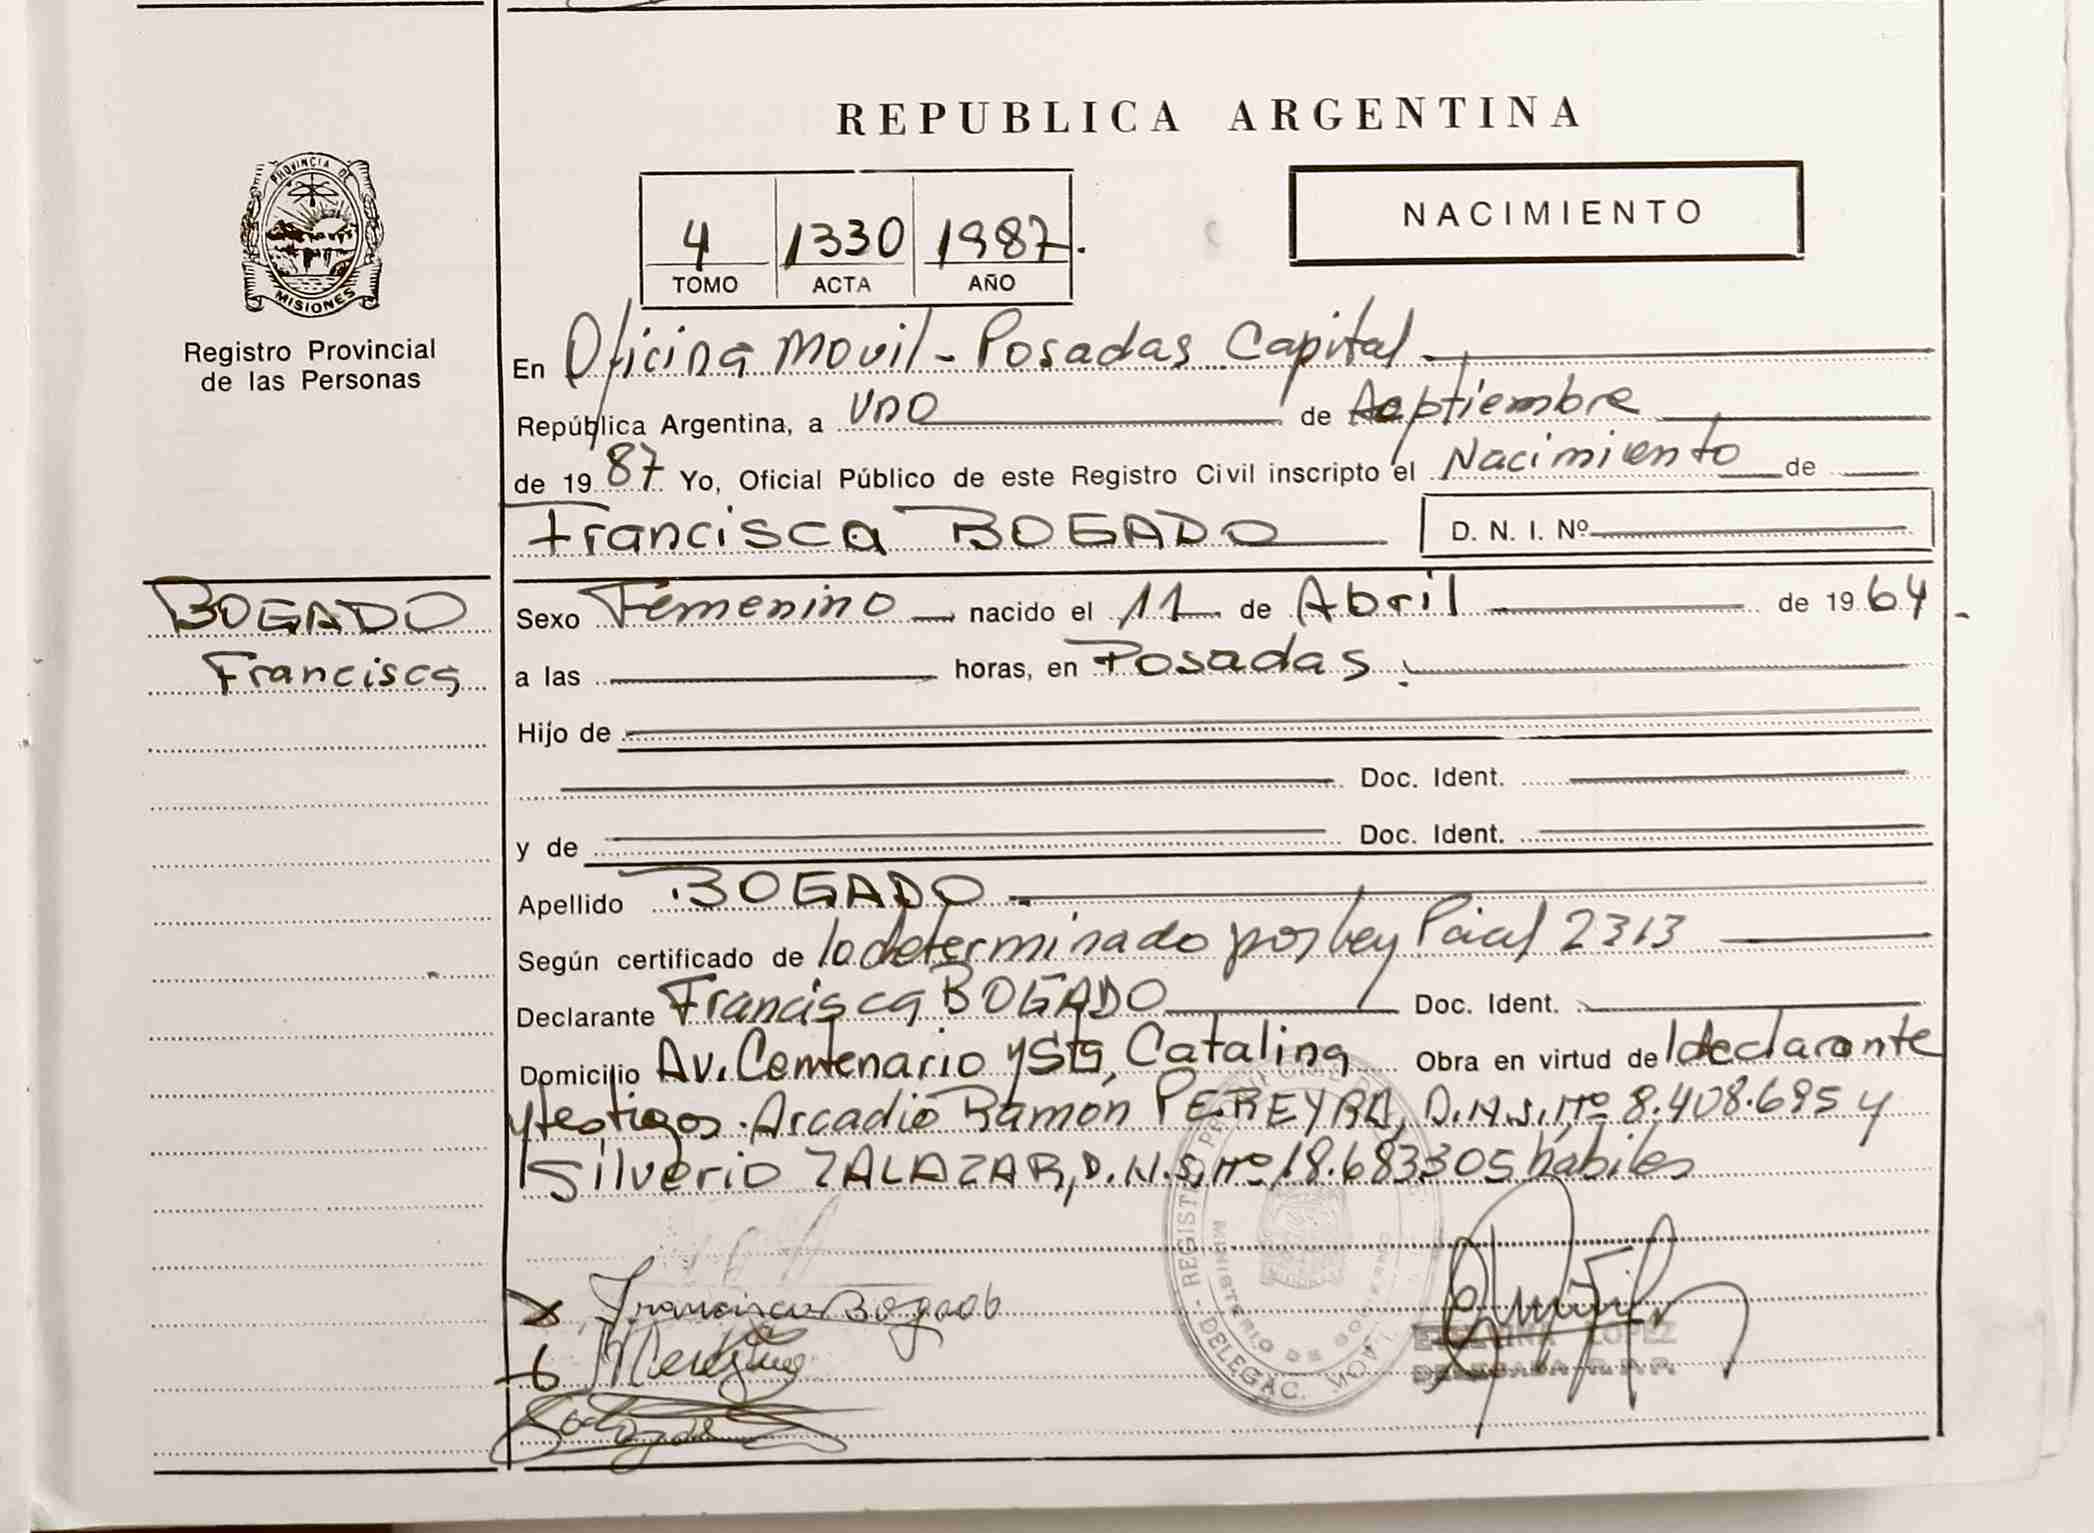 REPUBLICA ARGENTINA
PROVINCIA DE MISIONES
Registro Provincial
de las Personas
4 1330 1987.
TOMO ACTA AÑO
NACIMIENTO
En Oficina Movil - Posadas Capital
República Argentina, a uno de septiembre
de 1987 Yo, Oficial Público de este Registro Civil inscripto el Nacimiento de
Francisca BOGADO D. N. I. Nº
BOGADO
Francisca
Sexo Femenino nacido el 11 de Abril de 1964
a las horas, en Posadas.
Hijo de
Doc. Ident.
y de Doc. Ident.
Apellido BOGADO
Según certificado de lo determinado por Ley Pcial 2313
Declarante Francisca BOGADO Doc. Ident.
Domicilio Av. Centenario y Sta, Catalina Obra en virtud de l declarante
y testigos. Arcadio Ramón PEREYRA, D.N.I, Nº 8.408.695 y
Silverio ZALAZAR, D.N.I, Nº 18.683305 hábiles
Francisca Bogado
LOPEZ
DELEGADA
REGISTRO
MINISTERIO DE GOBIERNO
DELEGAC.